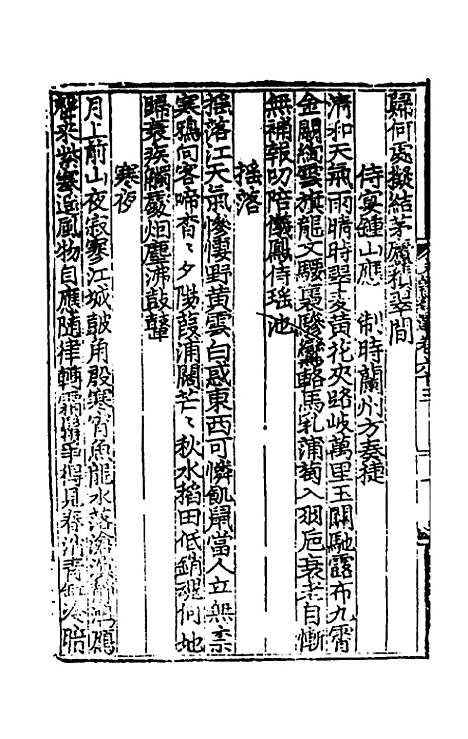 歸何處擬結茅廬積翠間
侍宴鍾山應　制時蘭州方奏捷
清和天氣雨晴時翠麥黃花夾路岐萬里玉關馳露布九霄
金闕絢雲旗龍文騕褭驂鸞輅馬乳蒲萄入羽巵衰老自慚
無補報叨陪儀鳳侍瑤池
搖落
搖落江天氣慘悽野黃雲白惑東西可憐飢鼠當人立無柰
寒鴉向客啼杳〻夕陽葭浦闊芒〻秋水稻田低銷魂何地
歸衰疾觸處炬塵沸鼓鼙
寒夜
月上前山夜寂寥江城鼓角殷寒宵魚龍水落滄
塞風物自應隨律轉霜鬢